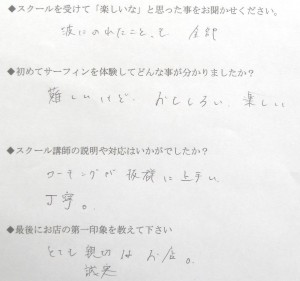 ◆スクールを受けて「楽しいな」と思った事をお聞かせください。
波にのれたこと、も 全部
◆初めてサーフィンを体験してどんな事が分かりましたか？
難しいけど、おもしろい、楽しい
◆スクール講師の説明や対応はいかがでしたか？
コーチングが 抜群に上手い、
丁寧。
◆最後にお店の第一印象を教えて下さい
とても 親切な お店。
誠実